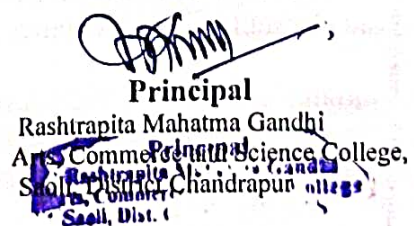 Principal
Rashtrapita Mahatma Gandhi
Arts, Commerce and Science College,
Saoli, District Chandrapur
Principal
Rashtrapita
Saoli, Dist.